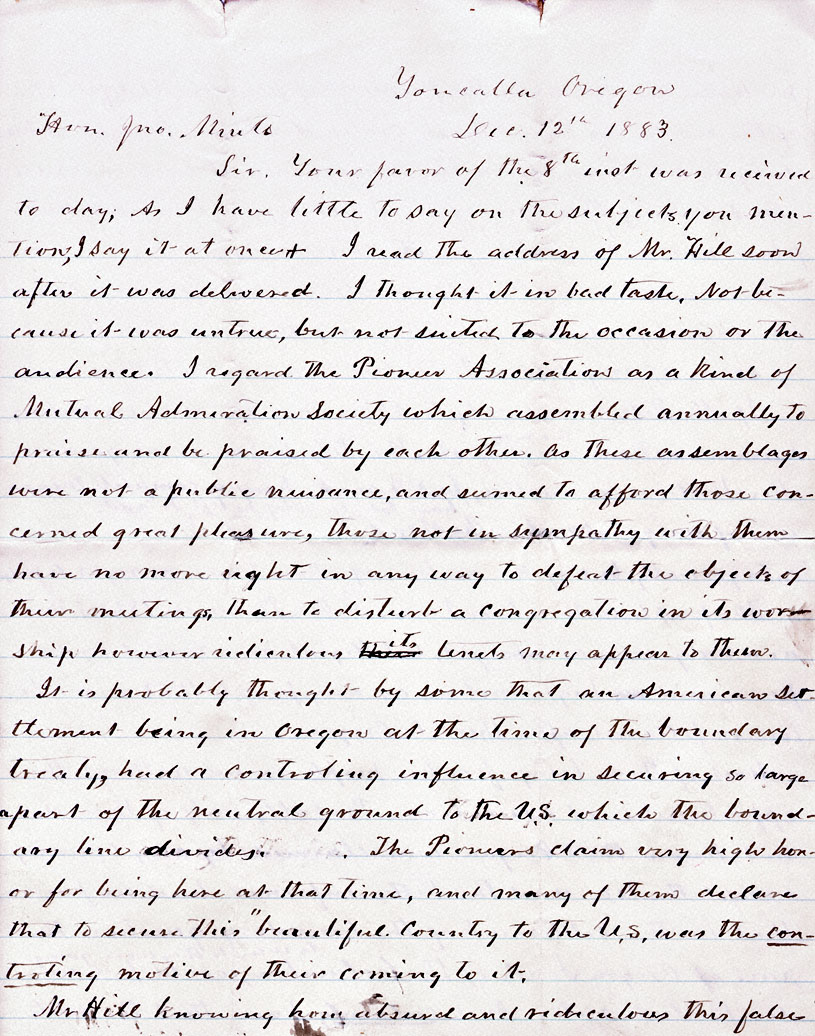 Yoncalla Oregon
Hon. Jno. Minto Dec. 12th 1883.
Sir. Your favor of the 8th inst was received
to day; As I have little to say on the subjects you men-
tion, I say it at once. I read the address of Mr. Hill soon
after it was delivered. I thought it in bad taste, Not be-
cause it was untrue, but not suited to the occasion or the
audience. I regard the Pioneer Association as a kind of
Mutual Admiration Society which assembled annually to
praise and be praised by each other. As these assemblages
were not a public nuisance, and seemed to afford those con-
cerned great pleasure, those not in sympathy with them
have no more right in any way to defeat the objects of
their meetings, than to disturb a congregation in its wor-
ship however ridiculous its tenets may appear to them.
It is probably thought by some that an American Set-
tlement being in Oregon at the time of the boundary
treaty, had a controling influence in securing so large
apart of the neutral ground to the U.S. which the bound-
ary line divides. The Pioneers claim very high hon-
or for being here at that time, and many of them declare
that to secure this "beautiful Country to the U.S. was the con-
troling motive of their coming to it.
Mr Hill knowing how absurd and ridiculous this false